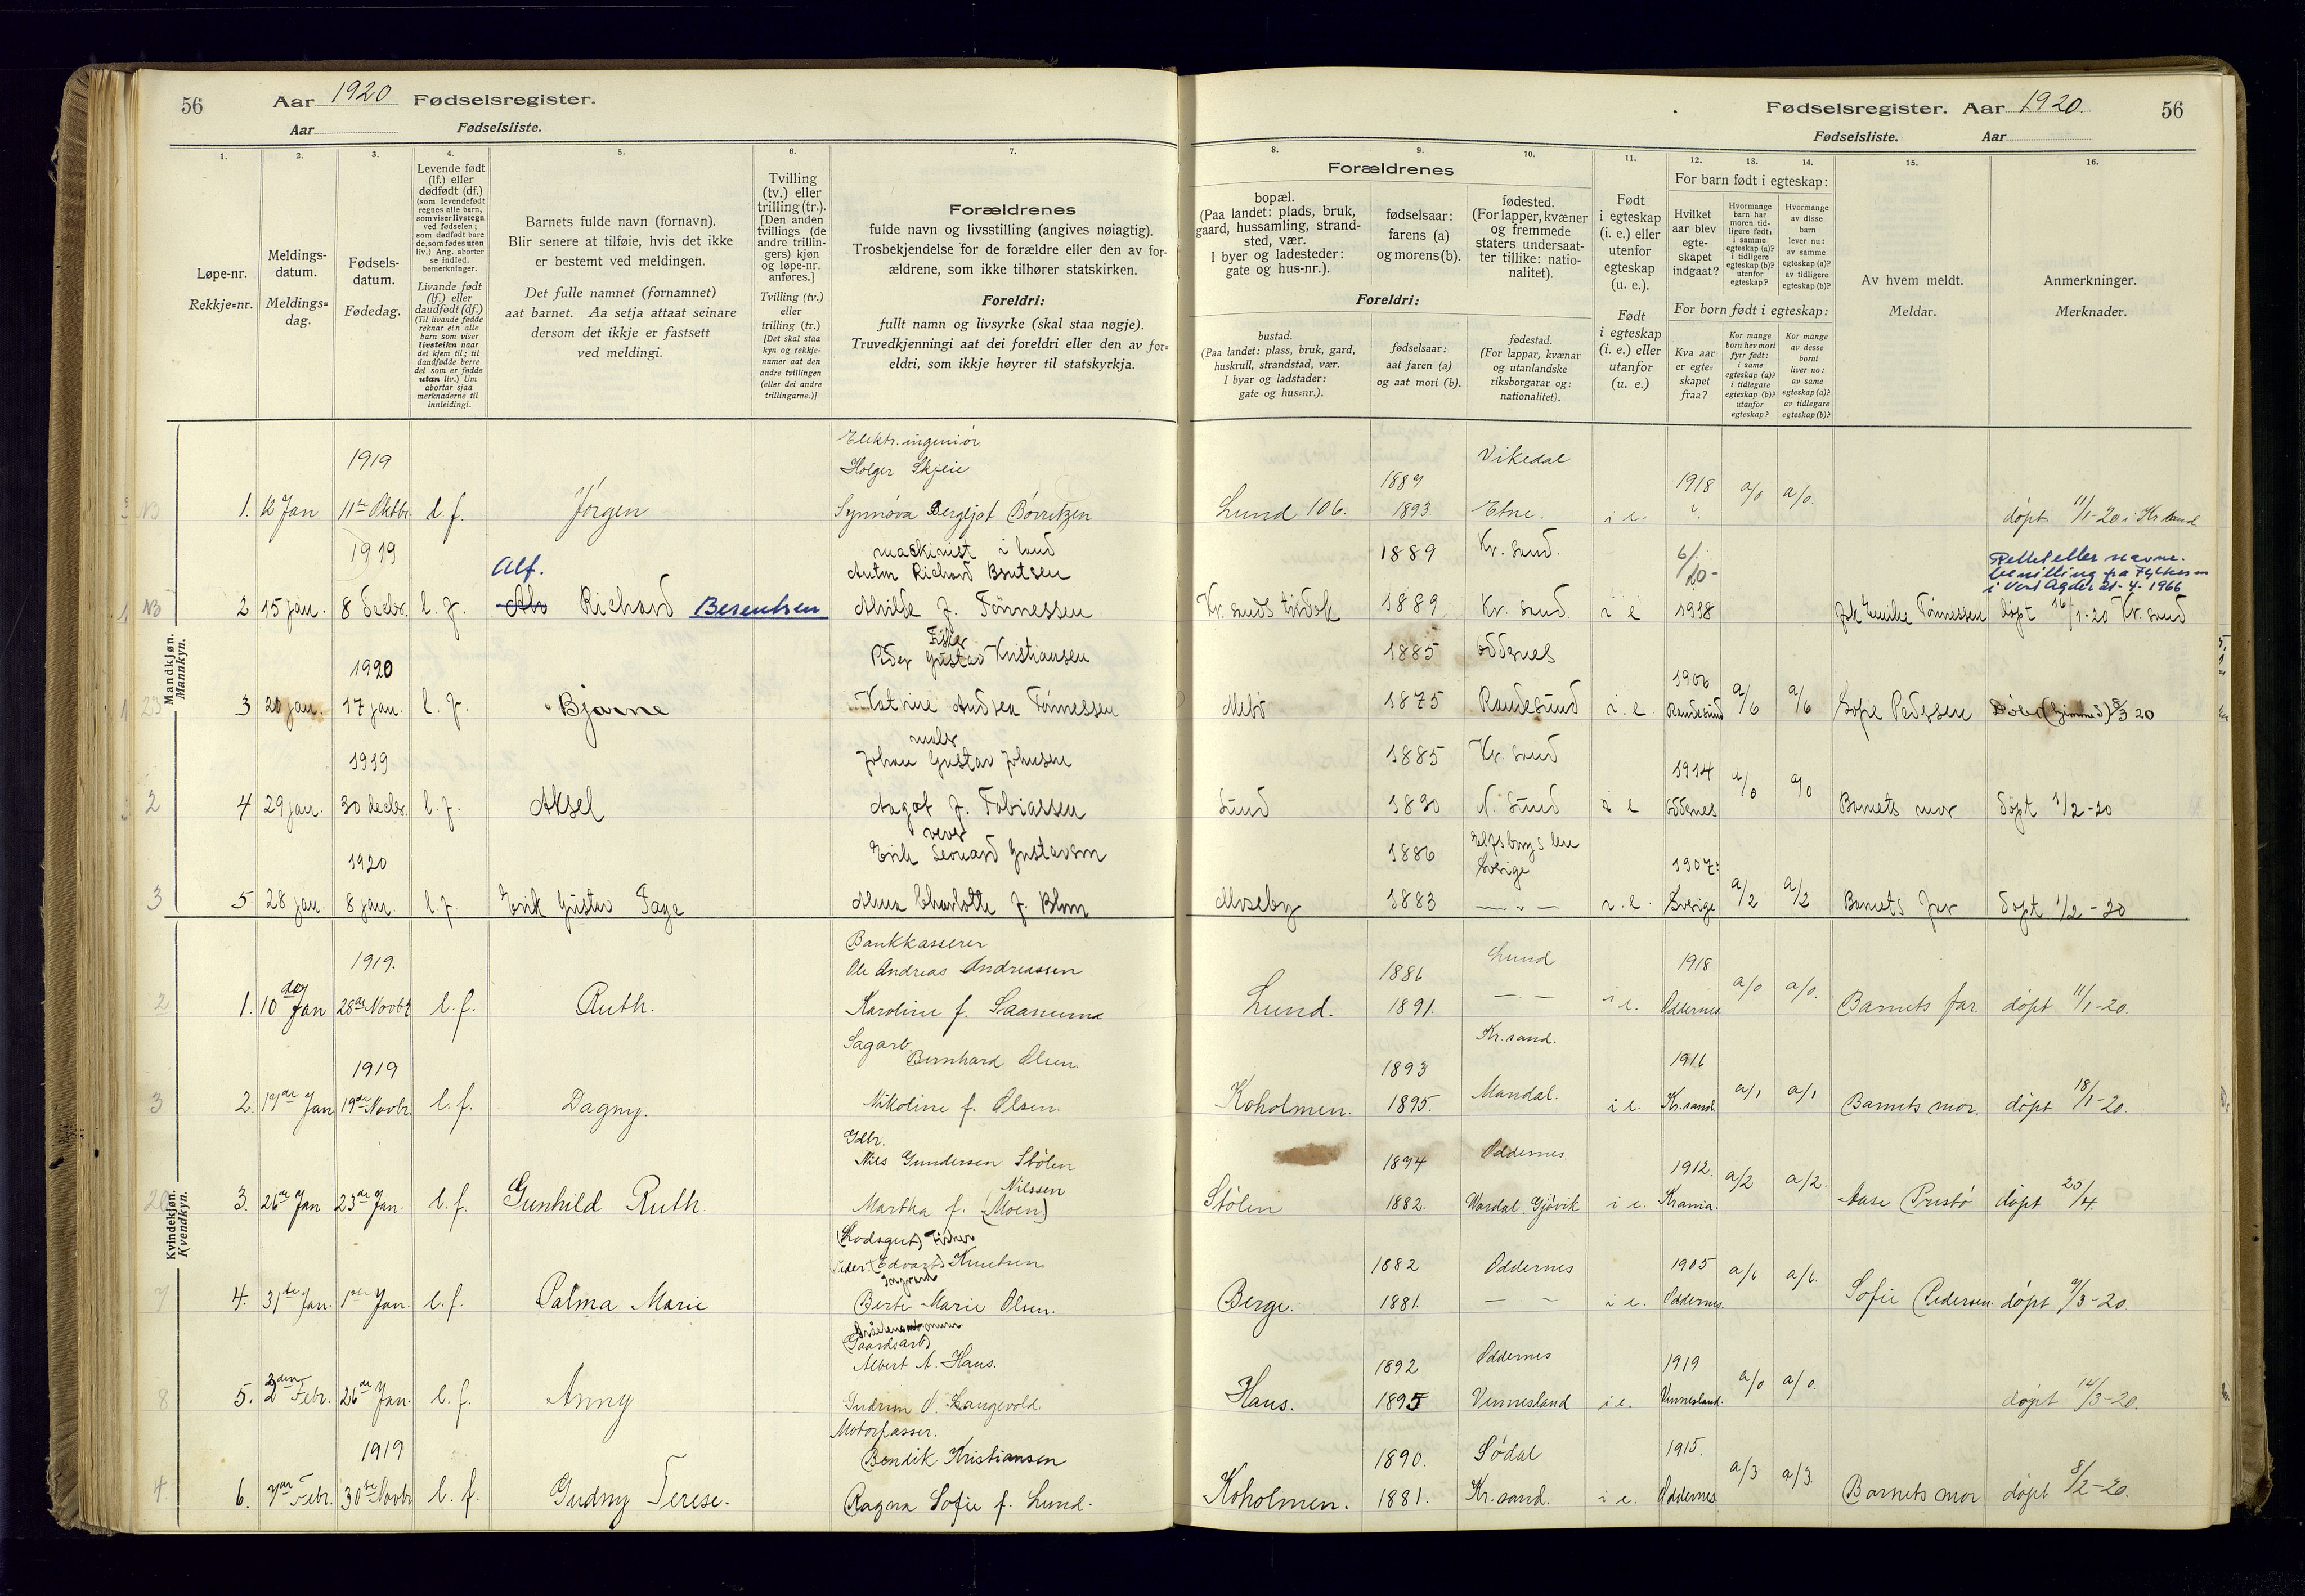 56 Aar 1920 Fødselsregister.
Aar Fødselsliste.
Fødselsregister. Aar 1920. 56
Fødselsliste. Aar
1. 2. 3. 4. 5. 6. 7.
Løpe-nr.
Rekkje=nr.
Meldings-
datum.
Meldings=
dag.
Fødsels-
datum.
Fødedag.
Levende født
(lf.) eller
dødfødt (df.)
(som levendefødt
regnes alle barn,
som viser livstegn
ved fødselen;
som dødfødt bare
de, som fødes uten
liv.) Ang. aborter
se indled.
bemerkninger.
Livande født
(lf.) eller
daudfødt (df.)
(Til livande fødde
reknar ein alle
barn som viser
livsteikn naar
dei kjem til; til
daudfødde berre
dei som er fødde
utan liv.) Um
abortar sjaa
merknaderne til
innleidingi.
Barnets fulde navn (fornavn).
Blir senere at tilføie, hvis det ikke
er bestemt ved meldingen.
Det fulle namnet (fornamnet)
aat barnet. Aa setja attaat seinare
dersom det ikkje er fastsett
ved meldingi.
Tvilling
(tv.) eller
trilling (tr.).
[Den anden
tvillings (de
andre trillin-
gers) kjøn
og løpe-nr.
anføres.]
Tvilling (tv.)
eller
trilling (tr.)
[Det skal staa
kyn og rekkje-
numer aat den
andre tvillingen
(eller dei andre
trillingarne.)]
Forældrenes
fulde navn og livsstilling (angives nøiagtig).
Trosbekjendelse for de forældre eller den av for-
ældrene, som ikke tilhører statskirken.
Foreldri:
fullt namn og livsyrke (skal staa nøgje).
Truvedkjenningi aat dei foreldri eller den av for=
eldri, som ikkje høyrer til statskyrkja.
8. 9. 10. 11. 12. 13. 14. 15. 16.
Forældrenes
bopæl.
(Paa landet: plads, bruk,
gaard, hussamling, strand-
sted, vær.
I byer og ladesteder:
gate og hus-nr.).
fødselsaar:
farens (a)
og morens (b).
fødested.
(For lapper, kvæner
og fremmede
staters undersaat-
ter tillike: natio-
nalitet).
Foreldri:
bustad.
(Paa landet: plass, bruk, gard,
huskrull, strandstad, vær.
I byar og ladstader:
gate og hus=nr.).
fødselsaar:
aat faren (a)
og aat mori (b).
fødestad.
(For lappar, kvænar
og utanlandske
riksborgarar og:
nationalitet).
Født
i egteskap
(i. e.) eller
utenfor
egteskap
(u. e.).
Født
i egteskap
(i. e.) eller
utanfor
(u. e.)
For barn født i egteskap:
Hvilket
aar blev
egte-
skapet
indgaat?
Hvormange
barn har
moren tid-
ligere født:
i samme
egteskap (a)?
i tidligere
egteskap (b)?
utenfor
egteskap?
Hvormange
av disse
barn
lever nu:
av samme
egteskap (a)?
av tidligere
egteskap (b)?
For born født i egteskap:
Kva aar
er egte=
skapet
fraa?
Kor mange
born hev mori
fyrr født:
i same
egteskap (a)?
i tidlegare
egteskap (b)?
utanfor
egteskap?
Kor mange
av desse
borni
liver no:
av same
egteskap (a)?
av tidlegare
egteskap (b)?
Av hvem meldt.
Meldar.
Anmerkninger.
Merknader.
Mandkjøn.
Mannkyn.
1919 Elektr. ingeniør
Holger Skjeie 1889 Vikedal 1918
1. 12 Jan 11te Oktbr. l. f. Jørgen Synnøva Bergljot Børretzen Lund 106. 1893 Etne. i e. a/0 a/0. døpt 11/1-20 i Kr.sand
1919 Alf. maskinist i land
Anton Richard Berntsen 1889 Kr. sand. 6/20-
i Vest Agder 21-4. 1966
2 15 jan. 8 decbr. l. f. Richard Berentsen Alvilde f. Tønnessen 1889 Kr. sand. i e 1918 Emilie Tønnessen døpt 16/1-20 Kr. sand
1920 Fisker
Peder Gustav Kristiansen 1885 Oddernes 1906
3 20 jan. 17 jan. l. f. Bjarne Katrine Andrea Tønnessen 1875 Randesund i. e. Randesund a/6 a/6 Sofie Pedersen 20
1919 maler
Johan Gustav Johnsen 1885 Kr. sand 1914
4 29 jan. 30 decbr. l. f. Aksel Aagot f. Tobiassen Lund 1890 i e Oddernes a/0 a/0 Barnets mor døpt 1/2-20
1920 væver
Erik Leonard Gustavson 1886 Elfsborgs len
Sverige 1907:
5 28 jan. 8 jan. l. f. Erik Gustav Tage Alma Charlotte f. Blom Moseby 1883 — " — i. e. Sverige a/2 a/2 Barnets far døpt 1/2-20
Kvindekjøn.
Kvendkyn.
1919. Bankkasserer
Ole Andreas Andreassen 1886 Lund 1918
1. 10de Jan 28de Novbr l. f. Ruth. Karoline f. Saanum Lund. 1891. — " — i e. Oddernes a/0 a/0. Barnets far. døpt 11/1-20.
1919 Sagarb.
Bernhard Olsen. 1893 Kr. sand. 1916
2. 17de Jan 19de Novbr. l. f. Dagny. Nikoline f. Olsen. Koholmen. 1895. Mandal. i e. Kr.sand. a/1 a/1 Barnets mor. døpt 18/1-20.
Gdbr.
Nils Gundersen Stølen 1894 Oddernes. 1912.
Nilssen
3. 26de Jan 23de Jan. l. f. Gunhild Ruth. Martha f. (Moen) Stølen 1882. Wardal. Gjøvik i e. Krania. a/2 a/2. Aase Prestø døpt 25/4.
(Lodsgut) Fisker
Peder (Edvart) Knutsen 1882 Oddernes 1905
Ingvard
4. 31te Jan. 1ste Jan. l. f. Palma Marie Berte Marie Olsen. Berge. 1881. — " — i e. Oddernes. a/6 a/6. Sofie Pedersen døpt 7/3-20
(Gaardsarb)
Albert A. Haus. 1892 Oddernes 1919
5. 2den Febr. 26de Jan. l. f. Anny Gudrun O. Langevold. Haus. 1895 Vennesland i e. Vennesland. a/0 a/0. døpt 14/3-20.
1919 Motorpasser.
Bendik Kristiansen 1890. Sødal 1915.
6. 7de Febr. 30te Novbr l. f. Gudny Terese. Ragna Sofie f. Lund. Koholmen. 1881. Kr. sand. i e. Oddernes a/3 a/3. Barnets mor døpt 8/2-20.